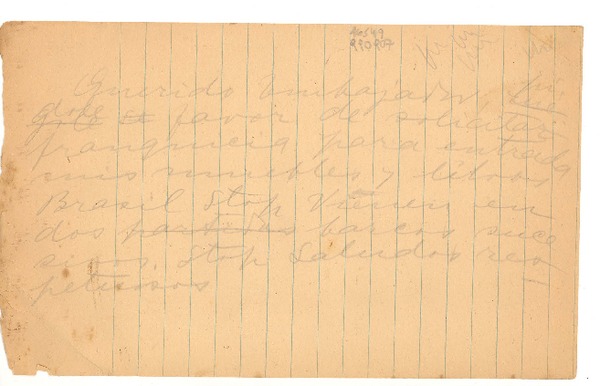 46549
990907
Querido Embajador,
favor de solicitar
franquicia para entrada
mis muebles y libros
Brasil Stop Vienen en
dos partidas barcos suce
sivos. Stop Saludos res-
petuosos